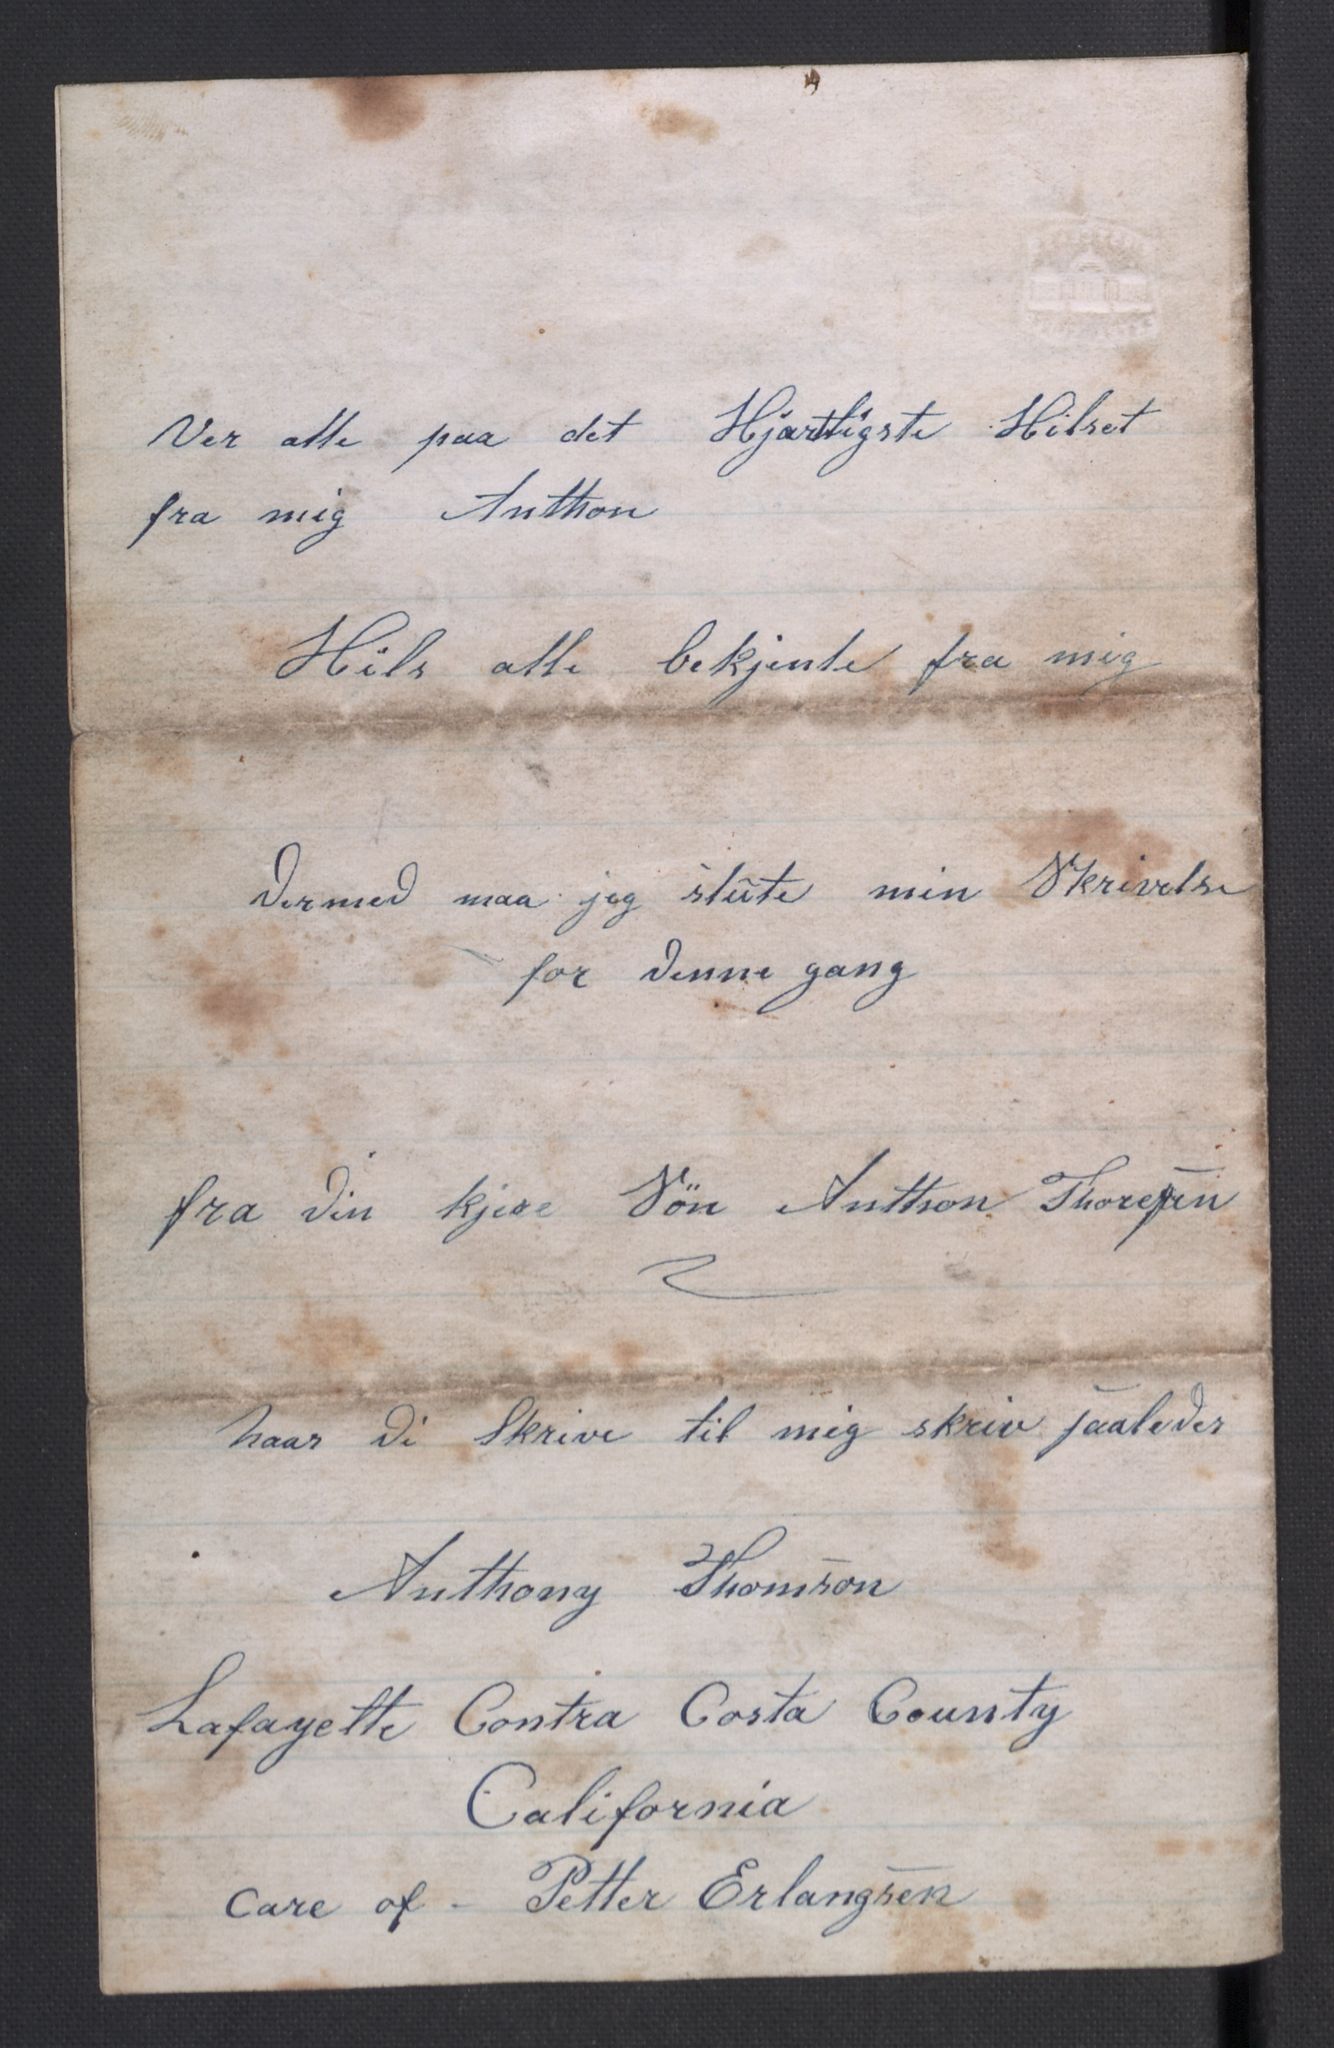 Ver alle paa det Hjartligste Hilset
fra mig Anthon
Hils alle bekjente fra mig
Dermed maa jeg slute min Skrivelse
for denne gang
fra Din kjere Sön Anthon Thoresen
naar Di Skrive til mig skriv saaledes
Anthony Thomson
Lafayette Contra Costa County
California
Care of - Petter Erlangsen